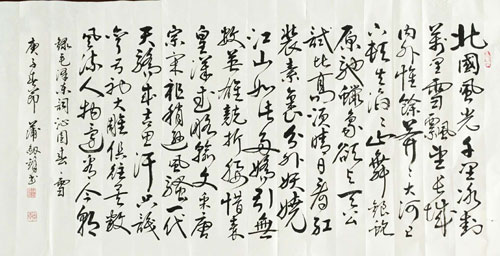 北國風光千里冰封
萬里雪飄望長城
内外惟餘莽〻大河上
下頓失滔〻山舞銀蛇
原馳蠟象欲與天公
試比高須晴日看紅
裝素裹分外妖嬈
江山如此多嬌引無
數英雄競折腰惜秦
皇漢武略輸文采唐
宗宋祖稍遜風騷一代
天驕成吉思汗只識
彎弓射大雕俱往矣數
風流人物還看今朝
錄毛澤東詞沁園春·雪
庚子春節 蒲 書